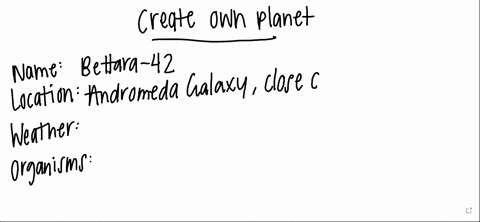 Create own planet
Name: Bettara-42
Location: Andromeda Galaxy, close c
Weather:
Organisms: